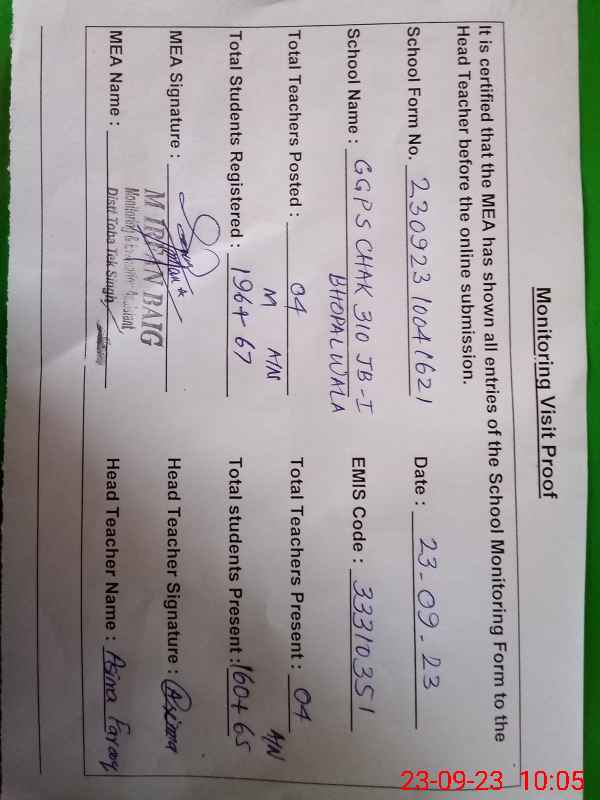 Monitoring Visit Proof
It is certified that the MEA has shown all entries of the School Monitoring Form to the
Head Teacher before the online submission.
School Form No. 230923 10041621 Date : 23-09-23
School Name : GGPS CHAK 310 JB-I EMIS Code : 33310351
BHOPALWALA
Total Teachers Posted : 04 Total Teachers Present : 04
M A/N A/N
Total Students Registered : 196+67 Total students Present : 160+65
MEA Signature : Head Teacher Signature : Asima
M IRFAN BAIG
Monitoring & Evaluation Assistant
MEA Name : Distt Toba Tek Singh Head Teacher Name : Asima Farooq
23-09-23 10:05